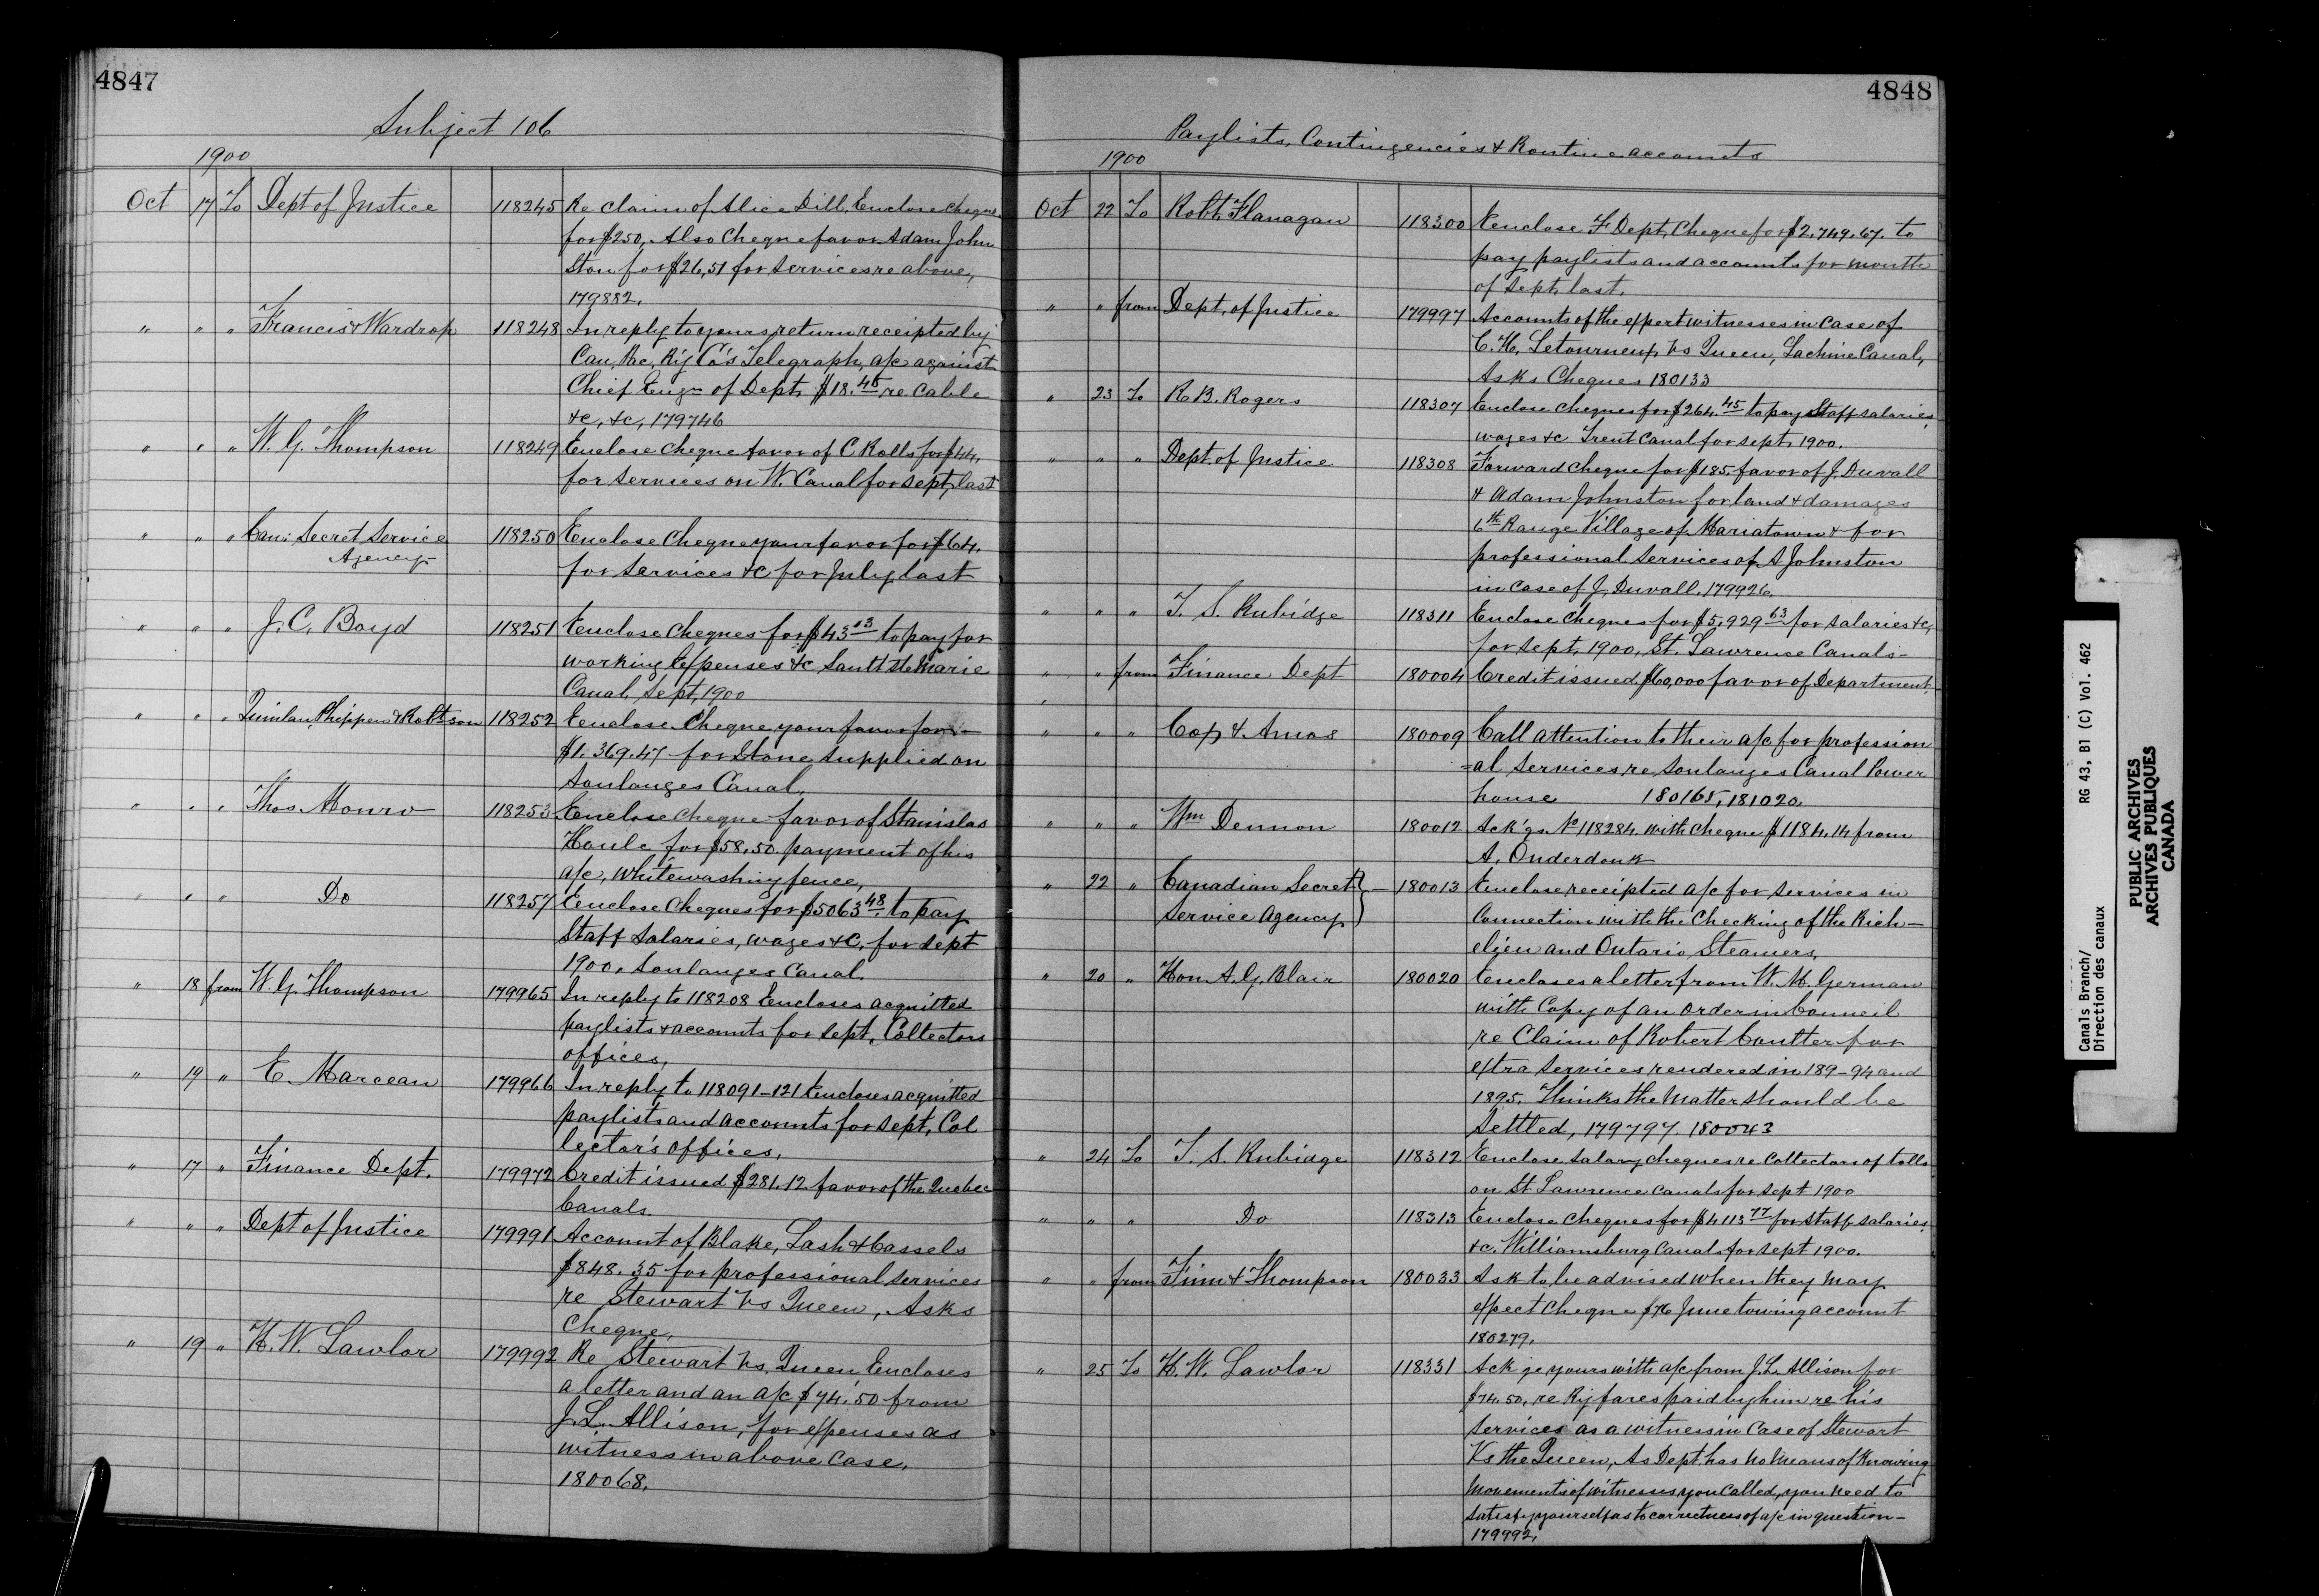 4847
Subject 106
1900
Oct 17 To Dept of Justice 118245 Re claim of Alice Dill, Enclose cheque
for $250, Also Cheque favor Adam John
ston for $26,51 for services re above,
179882.
" " " Francis & Wardrop 118248 In reply to yours return receipted by
Can, Pac, Ry Co's Telegraph, a/c against
Chief Engr of Dept. $18.45 re Cable
&c, &c, 179746
" " " W. G. Thompson 118249 Enclose Cheque favor of C Rolls for $44,
for services on W. Canal for Sept, last
" " " Can: Secret Service
Agency 118250 Enclose Cheque your favor for $64.
for services &c for July last
" " " J. C. Boyd 118251 Enclose Cheques for $43 13 to pay for
working Expenses &c Sault Ste Marie
Canal, Sept, 1900
" " " Quinlan Phippen & Robtson 118252 Enclose Cheque your favor for -
$1,369.47 for Stone supplied on
Soulanges Canal,
" " " Thos Monro 118253 Enclose Cheque favor of Stanislas
Houle for $58,50 payment of his
a/c, whitewashing fence,
" " " Do 118257 Enclose Cheques for $5063 48 to pay
Staff salaries, wages &c, for Sept
1900, Soulanges Canal
" 18 from W. G. Thompson 179965 In reply to 118208 Encloses acquitted
paylists & accounts for Sept, Collectors
offices,
" 19 " E Marceau 179966 In reply to 118091-121 Encloses acquitted
paylists and accounts for Sept, Col
lector's offices,
" 17 " Finance Dept. 179972 Credit issued $281.12 favor of the Quebec
Canals.
" " " Dept of Justice 179991 Account of Blake, Lash & Cassels
$848.35 for professional services
re Stewart vs Queen, Asks
Cheque,
" 19 " H. W. Lawlor 179992 Re Stewart vs, Queen Encloses
a letter and an a/c $74.50 from
J. L. Allison, for expenses as
witness in above case,
180068,
4848
Paylists, Contingencies & Routine accounts
1900
Oct 22 To Robt Flanagan 118300 Enclose F Dept, Cheque for $2,749.67. to
pay paylists and accounts for month
of Sept, last,
" " from Dept, of Justice 179997 Accounts of the expert witnesses in case of
C. H, Letourneux vs Queen, Lachine Canal,
Asks Cheques 180133
" 23 To R. B. Rogers 118307 Enclose Cheques for $264.45 to pay Staff salaries,
wages &c Trent Canal for Sept, 1900.
" " " Dept. of Justice 118308 Forward Cheque for $185. favor of J. Duvall
& Adam Johnston for land & damages
6th Range Village of Mariatown & for
professional services of A Johnston
in case of J. Duvall. 179926.
" " " T. S. Rubidge 118311 Enclose Cheques for $5,929 63 for salaries &c,
for Sept, 1900, St. Lawrence Canals -
" " from Finance Dept 180004 Credit issued $60,000 favor of Department,
" " " Cox & Amos 180009 Call attention to their a/c for profession
=al services re Soulanges Canal Power
house 180165, 181020.
" " " Wm Dennon 180012 Ack'gs No 118284. with cheque $1184.14 from
A. Onderdonk
" 22 " Canadian Secret
Service Agency 180013 Enclose receipted a/c for services in
connection with the checking of the Rich-
elieu and Ontario Steamers,
" 20 " Hon A. G. Blair 180020 Encloses a letter from W. M. German
with Copy of an order in Council
re Claim of Robert Coulter for
extra services rendered in 189-94 and
1895. Thinks the matter should be
settled, 179797 180043
" 24 To T. S. Rubidge 118312 Enclose salary cheques re Collectors of tolls
on St Lawrence Canals for Sept 1900
" " " Do 118313 Enclose cheques for $4113 77 for staff salaries
&c. Williamsburg Canal for Sept 1900.
" " from Finn & Thompson 180033 Ask to be advised when they may
expect cheque $76 June towing account
180279.
" 25 To H. W. Lawlor 118331 Ack'ge yours with a/c from J. L. Allison for
$74.50, re Ry fares paid by him re his
services as a witness in case of Stewart
Vs the Queen, As Dept. has no means of knowing
movements of witnesses you called, you need to
satisfy yourself as to correctness of a/c in question -
179992,
Canals Branch/
Direction des canaux
RG 43, B1 (C) Vol. 462
PUBLIC ARCHIVES
ARCHIVES PUBLIQUES
CANADA